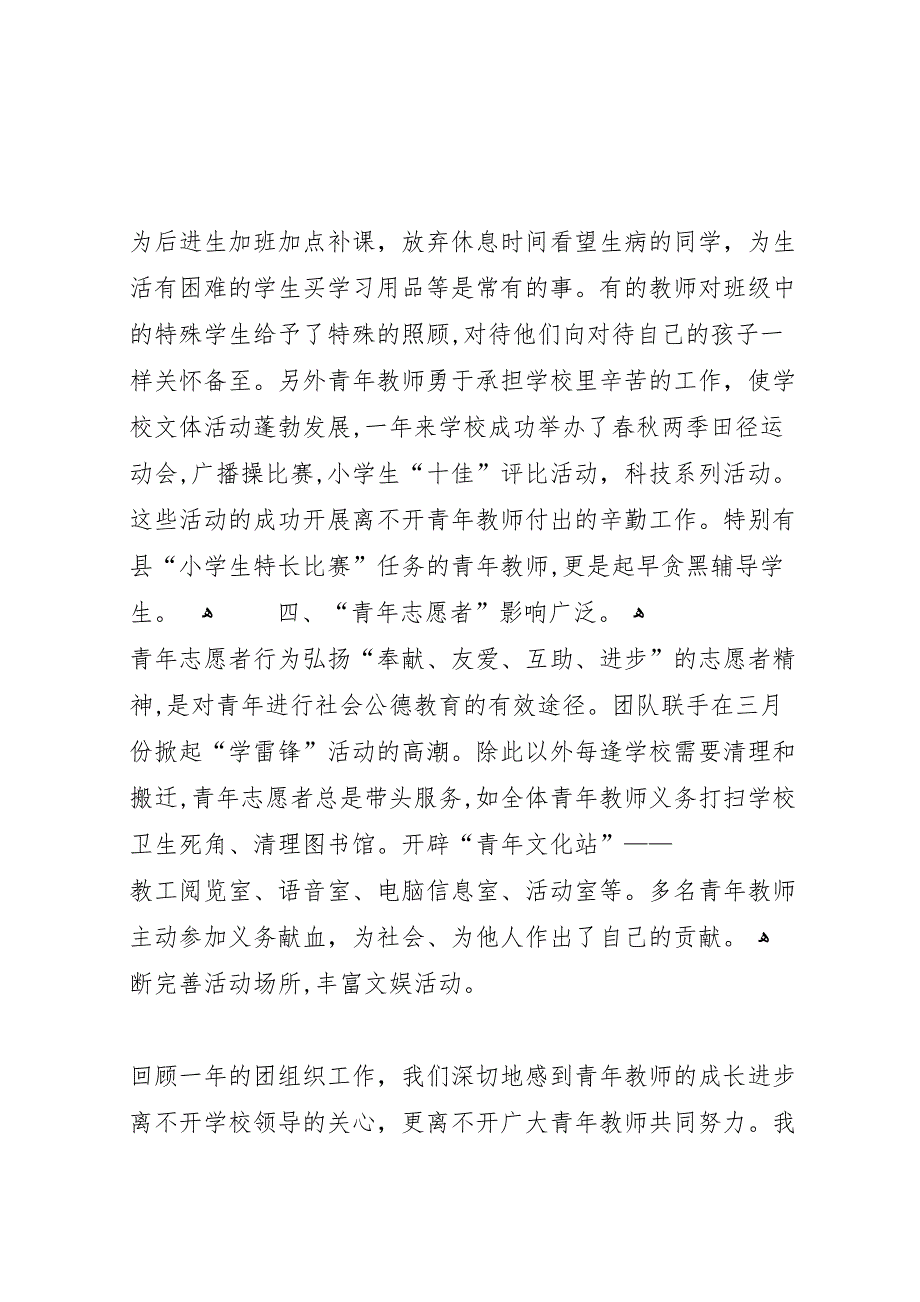 为后进生加班加点补课，放弃休息时间看望生病的同学，为生
活有困难的学生买学习用品等是常有的事。有的教师对班级中
的特殊学生给予了特殊的照顾,对待他们向对待自己的孩子一
样关怀备至。另外青年教师勇于承担学校里辛苦的工作，使学
校文体活动蓬勃发展,一年来学校成功举办了春秋两季田径运
动会,广播操比赛,小学生“十佳”评比活动，科技系列活动。
这些活动的成功开展离不开青年教师付出的辛勤工作。特别有
县“小学生特长比赛”任务的青年教师,更是起早贪黑辅导学
生。 ﻫ 四、“青年志愿者”影响广泛。 ﻫ
青年志愿者行为弘扬“奉献、友爱、互助、进步”的志愿者精
神,是对青年进行社会公德教育的有效途径。团队联手在三月
份掀起“学雷锋”活动的高潮。除此以外每逢学校需要清理和
搬迁,青年志愿者总是带头服务,如全体青年教师义务打扫学校
卫生死角、清理图书馆。开辟“青年文化站”——
教工阅览室、语音室、电脑信息室、活动室等。多名青年教师
主动参加义务献血，为社会、为他人作出了自己的贡献。 ﻫ
断完善活动场所,丰富文娱活动。
回顾一年的团组织工作，我们深切地感到青年教师的成长进步
离不开学校领导的关心，更离不开广大青年教师共同努力。我